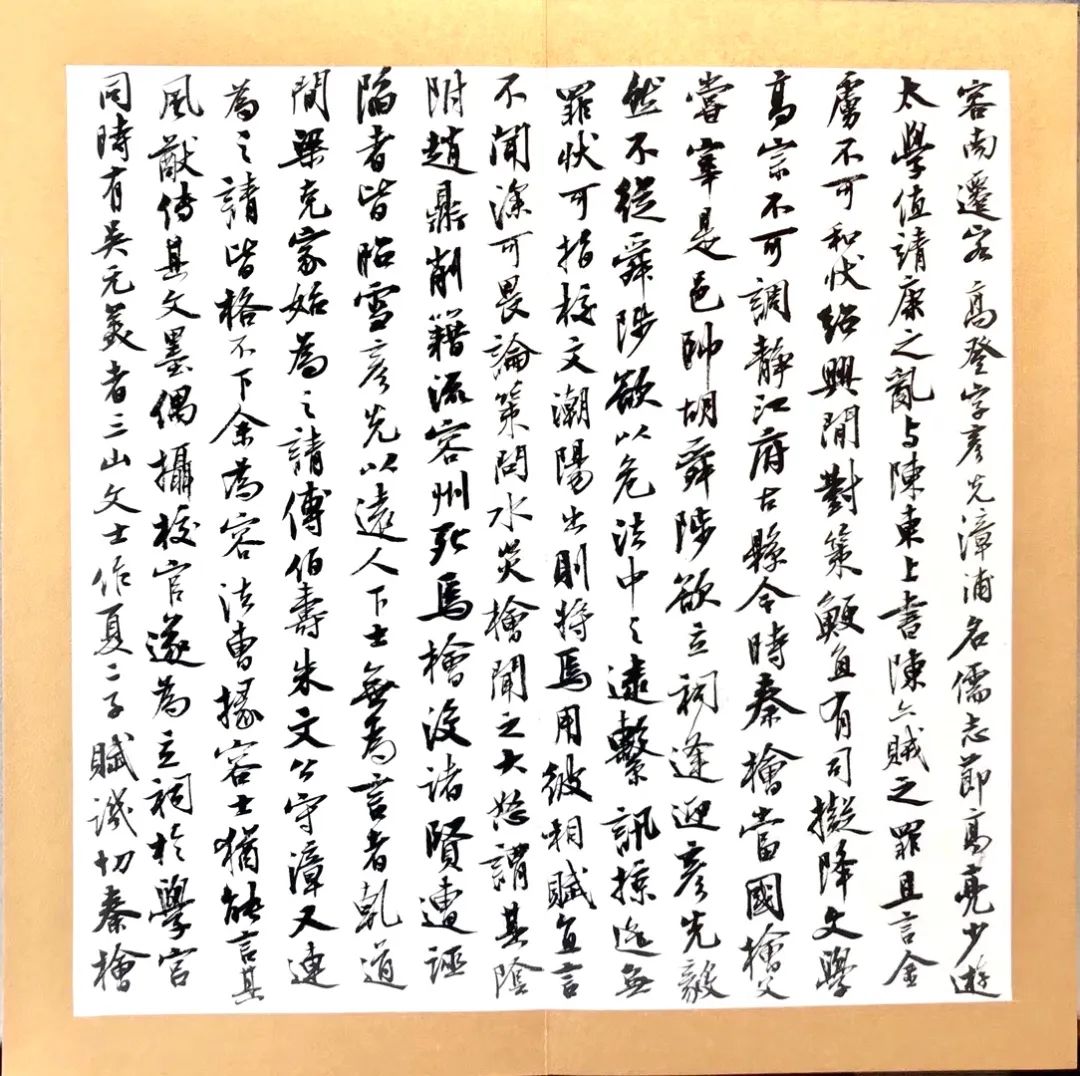 容南遷客高登字彥先漳浦名儒志節高亮少遊
太學值靖康之亂与陳東上書陳六賊之罪且言金
虜不可和狀紹興間對策鯁直有司擬降文學
高宗不可調靜江府古縣令時秦檜當國檜父
嘗宰是邑帥胡舜陟欲立祠逢迎彥先毅
然不從舜陟欲以危法中之逮繫訊掠迄無
罪狀可指校文潮陽出則將焉用彼相賦直言
不聞深可畏論策問水災檜聞之大怒謂其陰
附趙鼎削籍流容州死焉檜沒諸賢遭誣
陷者皆昭雪彥先以遠人下士無為言者乾道
間梁克家始為之請傅伯壽朱文公守漳又連
為之請皆格不下余為容法曹掾容士猶能言其
風猷傳其文墨偶攝校官遂為立祠於學官
同時有吳元美者三山文士作夏二子賦譏切秦檜